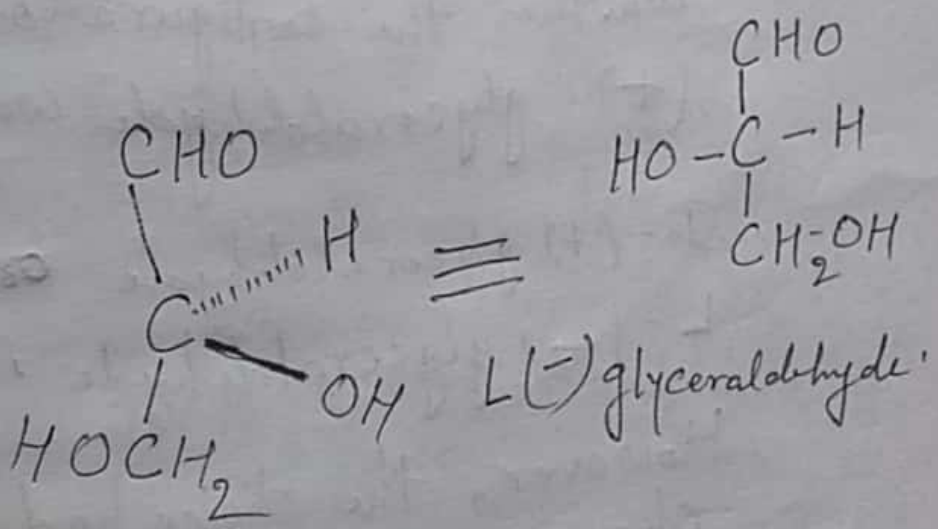 CHO
C
H
OH
HOCH₂
≡
CHO
HO-C-H
CH₂-OH
L(-) glyceraldehyde